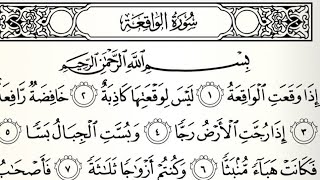 سُورَةُ الْوَاقِعَةِ
بِسْمِ اللَّهِ الرَّحْمَٰنِ الرَّحِيمِ
إِذَا وَقَعَتِ الْوَاقِعَةُ ١ لَيْسَ لِوَقْعَتِهَا كَاذِبَةٌ ٢ خَافِضَةٌ رَافِعَةٌ
٣ إِذَا رُجَّتِ الْأَرْضُ رَجًّا ٤ وَبُسَّتِ الْجِبَالُ بَسًّا ٥
فَكَانَتْ هَبَاءً مُنْبَثًّا ٦ وَكُنْتُمْ أَزْوَاجًا ثَلَاثَةً ٧ فَأَصْحَابُ